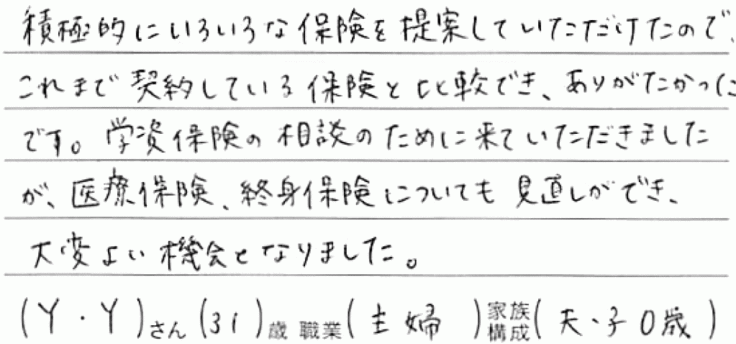 積極的にいろいろな保険を提案していただけたので、
これまで契約している保険と比較でき、ありがたかった
です。学資保険の相談のために来ていただきました
が、医療保険、終身保険についても見直しができ、
大変よい機会となりました。
(Y・Y)さん(31)歳 職業(主婦)家族構成(夫・子0歳)